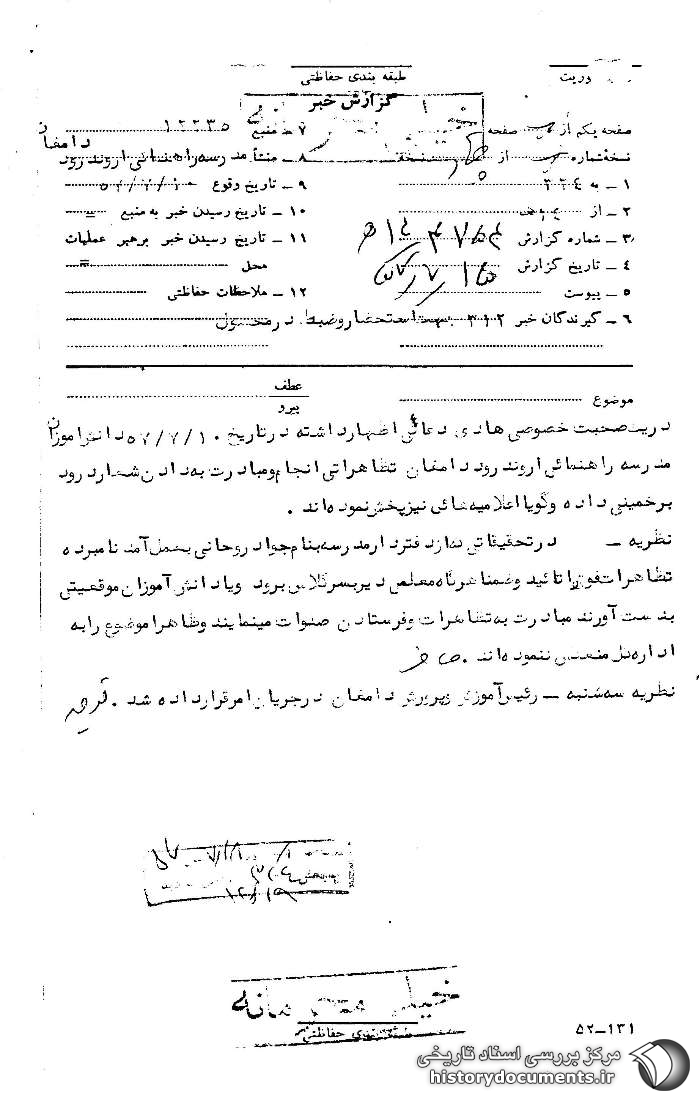 طبقه بندی حفاظتی
گزارش خبر
صفحه یکم از صفحه
نسخه شماره از نسخه
۱ ـ به ۳۲٤
۲ ـ از
۳ ـ شماره گزارش
٤ ـ تاریخ گزارش
۵ ـ پیوست
۶ ـ گیرندگان خبر ۳۱۲ جهت استحضار وضبط در محصول
۷ ـ منبع ۱۲۲۳۵
۸ ـ منشأ مدرسه راهنمائی اروند رود دامغان
۹ ـ تاریخ وقوع ۵۷/۷/۱۰
۱۰ ـ تاریخ رسیدن خبر به منبع
۱۱ ـ تاریخ رسیدن خبر برهبر عملیات
محل
۱۲ ـ ملاحظات حفاظتی
موضوع
عطف
پیرو
دریت صحبت خصوصی هادی دعائی اظهارداشته درتاریخ ۵۷/۷/۱۰ دانش اموزان
مدرسه راهنمائی اروند رود دامغان تظاهراتی انجام ومبادرت به دادن شعار درود
برخمینی داده وگویا اعلامیه هائی نیزپخش نموده اند .
نظریه ـ درتحقیقاتی که ازدفتردارمدرسه بنام جواد روحانی بعمل آمد نامبرده
تظاهرات فوق را تائید وضمنا هرگاه معلمی دیربسرکلاس برود ویا دانش آموزان موقعیتی
بدست آورند مبادرت به تظاهرات وفرستادن صلوات مینمایند وظاهرا موضوع رابه
اداره کل منعکس ننموده اند .
نظریه سه شنبه ـ رئیس آموزش وپرورش دامغان درجریان امرقرارداده شد .
خیلی محرمانه
طبقه بندی حفاظتی
۵۲ـ۱۳۱
مرکز بررسی اسناد تاریخی
historydocuments.ir